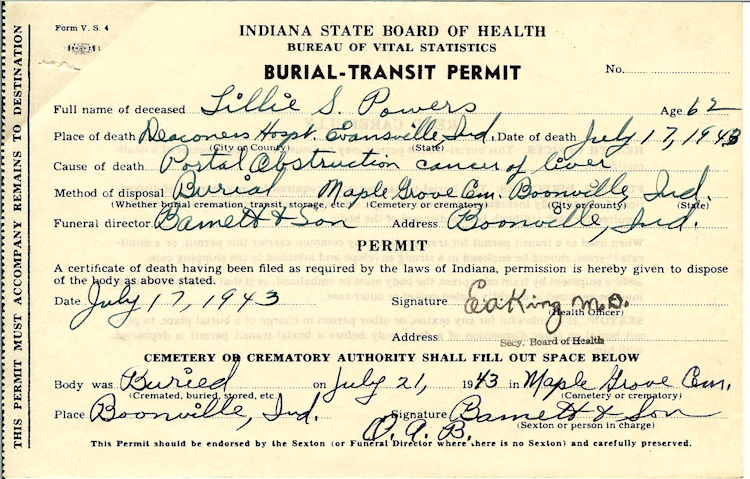 THIS PERMIT MUST ACCOMPANY REMAINS TO DESTINATION
Form V. S. 4
INDIANA STATE BOARD OF HEALTH
BUREAU OF VITAL STATISTICS
BURIAL-TRANSIT PERMIT
No.
Full name of deceased Lillie S. Powers Age 62
Place of death Deaconess Hospt. Evansville, Ind. Date of death July 17, 1943
(City or County) (State)
Cause of death Portal Obstruction cancer of liver
Method of disposal Burial Maple Grove Cem. Boonville, Ind.
(Whether burial cremation, transit, storage, etc.) (Cemetery or crematory) (City or county) (State)
Funeral director Barnett & Son Address Boonville, Ind.
PERMIT
A certificate of death having been filed as required by the laws of Indiana, permission is hereby given to dispose
of the body as above stated.
Date July 17, 1943 Signature EaKing M.D.
(Health Officer)
Address Secy. Board of Health
CEMETERY OR CREMATORY AUTHORITY SHALL FILL OUT SPACE BELOW
Body was Buried on July 21, 1943 in Maple Grove Cem.
(Cremated, buried, stored, etc.) (Cemetery or crematory)
Place Boonville, Ind. Signature Barnett & Son
(Sexton or person in charge)
O. A. B.
This Permit should be endorsed by the Sexton (or Funeral Director where there is no Sexton) and carefully preserved.